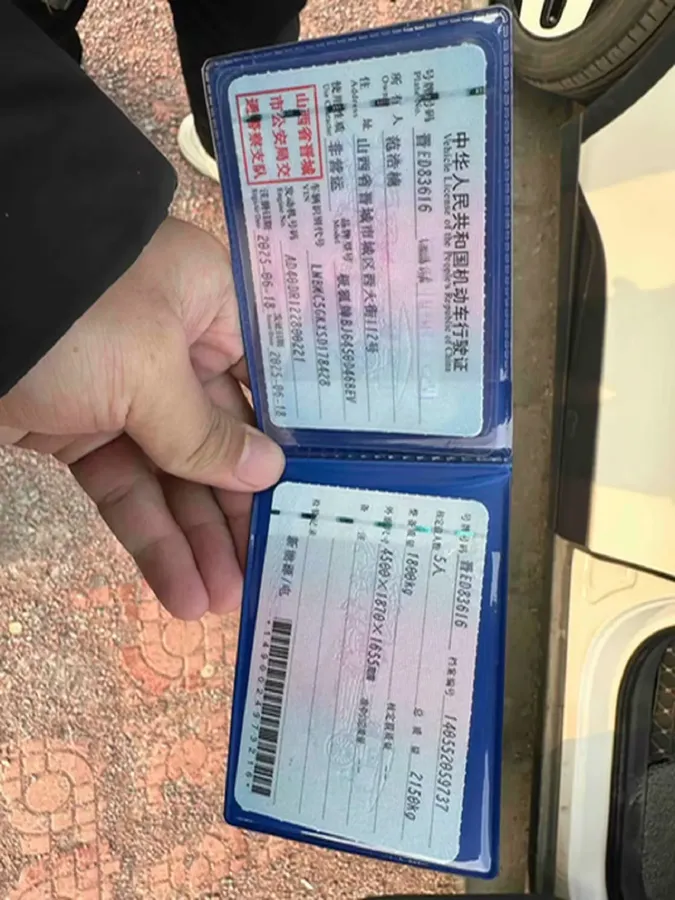 中华人民共和国机动车行驶证
Vehicle License of the People's Republic of China
号牌号码 晋ED83616
Plate No.
所有人 范浩楠
Owner
住址 山西省晋城市城区西大街112号
Address
使用性质 非营运 品牌型号 极狐牌BJ6450D46BEV
Use Character Model
山西省晋城
市公安局交
通警察支队
车辆识别代号 LNBMC5GKXSD178428
VIN
发动机号码 AD400R122800221
Engine No.
注册日期 2025-06-18 发证日期 2025-06-18
Register Date Issue Date
号牌号码 晋ED83616 档案编号 140552059737
核定载人数 5人 总质量 2150kg
整备质量 1800kg 核定载质量 --
外廓尺寸 4500×1870×1655mm 准牵引总质量 --
备注
检验记录
新能源/电
*1490024973216*